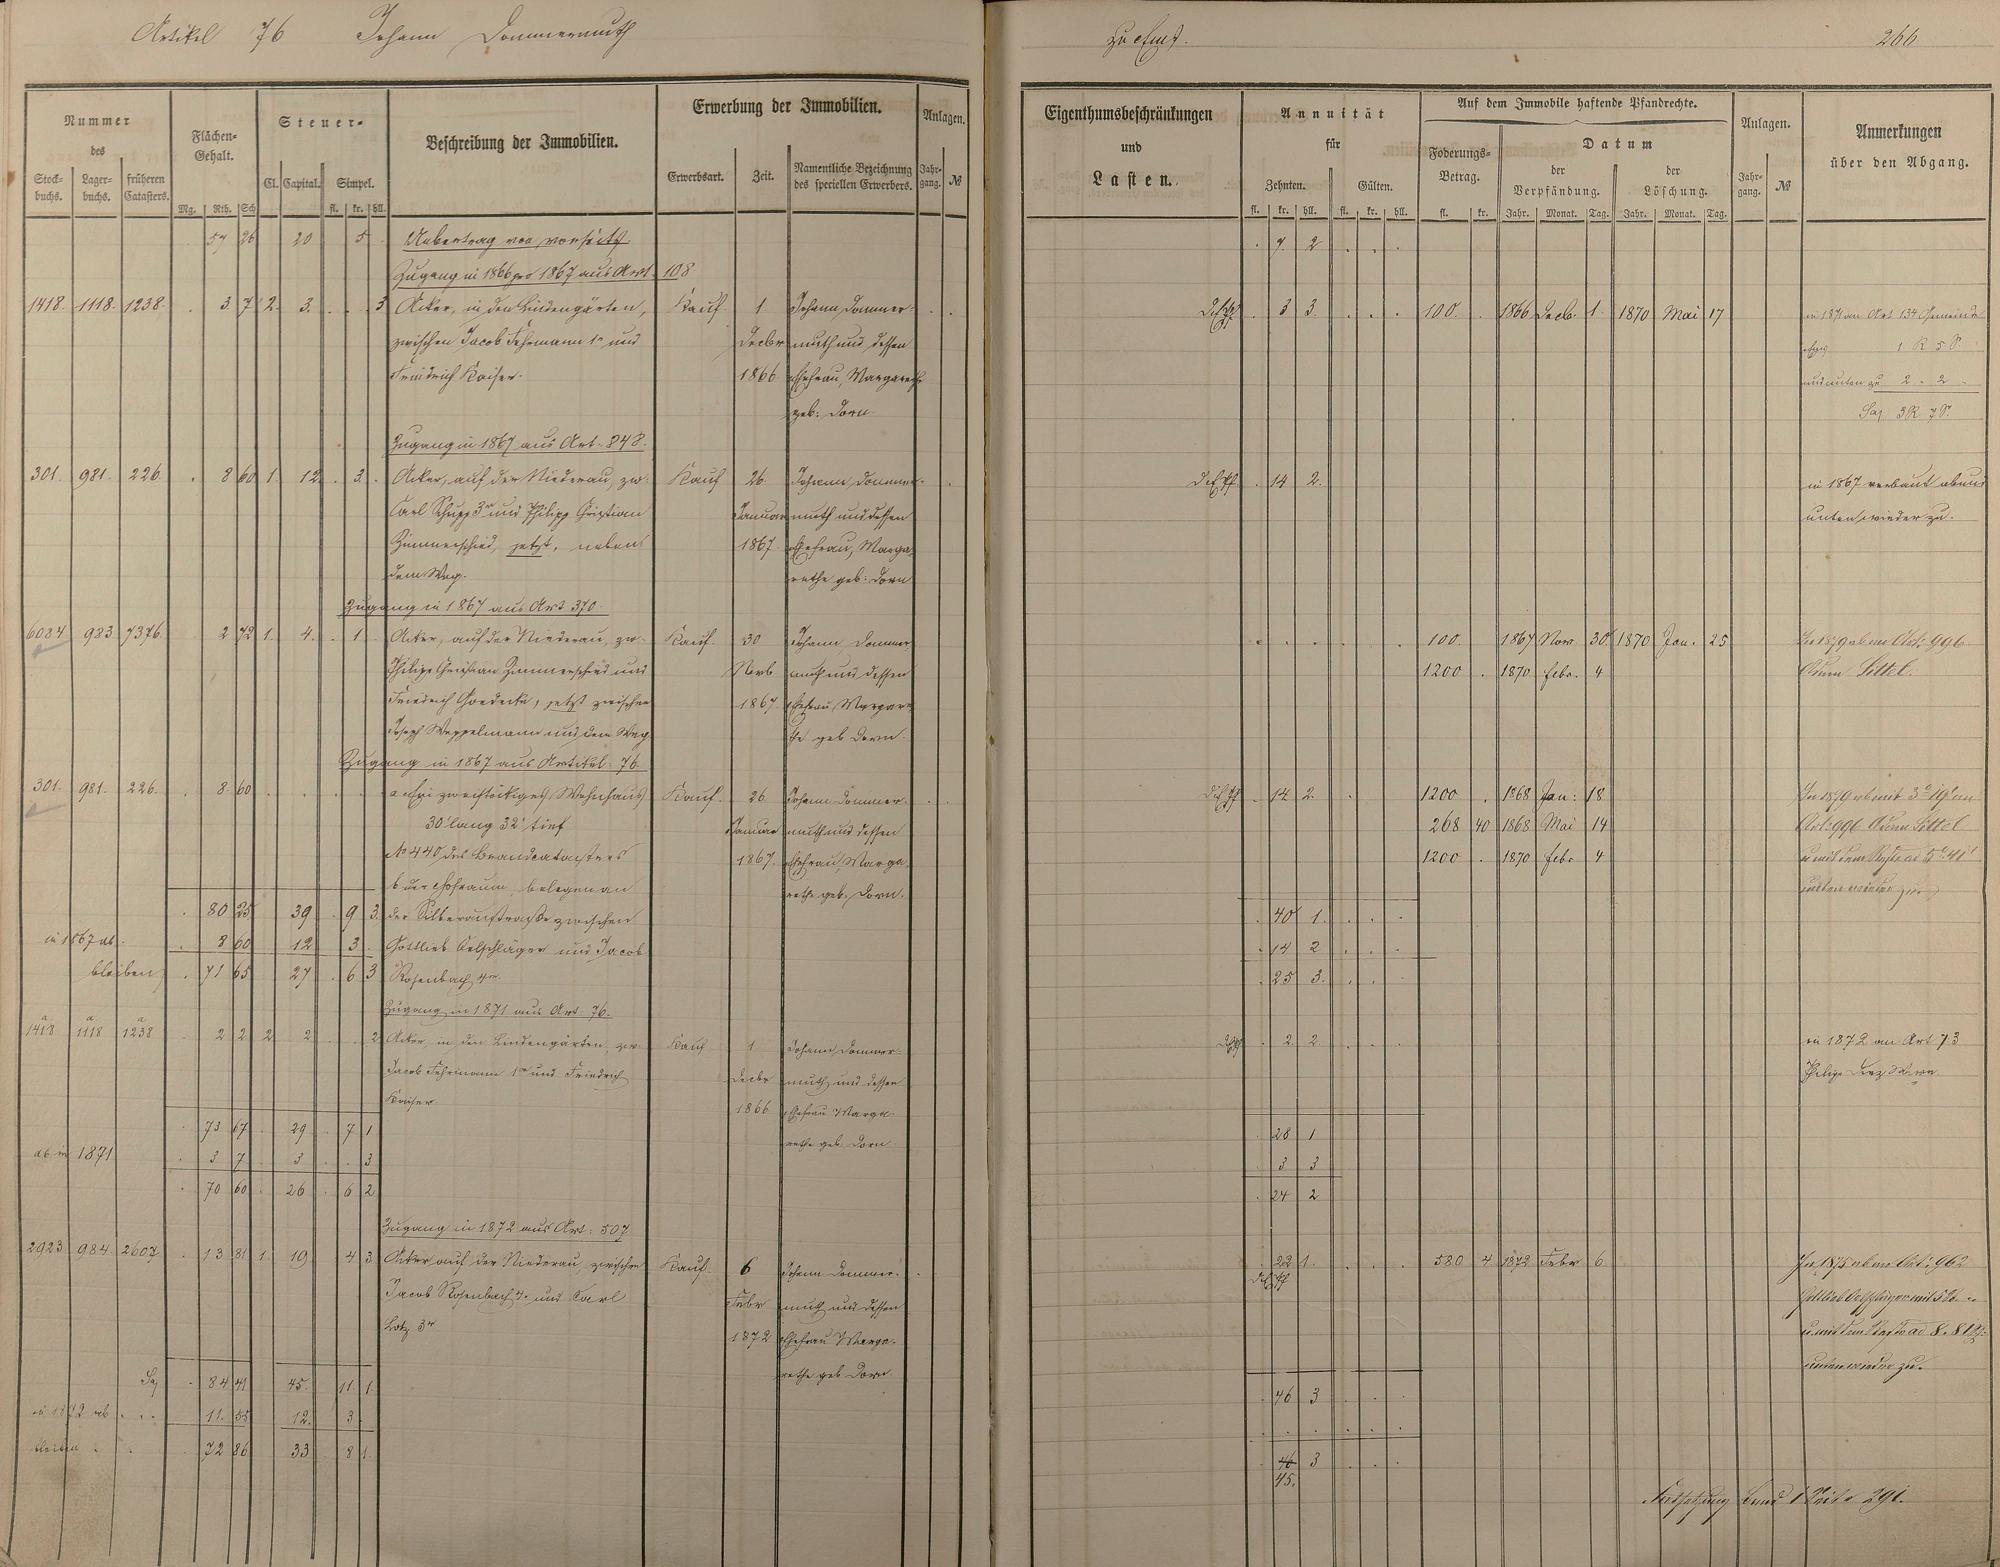 Artikel 76 Johann Dommermuth
zu Ems. 266
Nummer des
Stock-buchs. Lager-buchs. früheren Catasters.
Flächen-Gehalt.
Mg. Rth. Sch
Steuer-
Cl. Capital. Simpel.
fl. kr. hll.
Beschreibung der Immobilien.
Erwerbung der Immobilien.
Erwerbsart. Zeit. Namentliche Bezeichnung des speciellen Erwerbers.
Anlagen.
Jahr-gang. №
Eigenthumsbeschränkungen
und
Lasten.
Annuität
für
Zehnten. Gülten.
fl. kr. hll. fl. kr. hll.
Auf dem Immobile haftende Pfandrechte.
Foderungs-Betrag.
fl. kr.
Datum
der Verpfändung. der Löschung.
Jahr. Monat. Tag. Jahr. Monat. Tag.
Anlagen.
Jahr-gang. №
Anmerkungen
über den Abgang.
57 26 20 5 Uebertrag von vorseits 7. 2
Zugang in 1866 pro 1867 aus Art. 108
1418. 1118. 1238. 3. 7 2. 3. 3 Acker, in den Lindengärten, Kauf. 1 Johann Dommer- 3 3. 100. 1866 Decb. 1. 1870 Mai 17 in 1871 an Art 134 Gemeinde
zwischen Jacob Fehrmann 1r und Decbr muth und dessen Ems 1 R 5 S.
Friedrich Kaiser. 1866 Ehefrau, Margareth und unten zu 2 " 2 "
geb: Dorn. Sa 3 R 7 S.
Zugang in 1867 aus Art. 848.
301. 981. 226. 8 60 1. 12. 3. Acker, auf der Niederau, zw: Kauf 26. Johann Dommer- 14 2. in 1867 verbaut ab und
Carl Schupp 3r und Philipp Christian Januar muth und dessen unten wieder zu.
Zimmerschied, jetzt, neben 1867. Ehefrau, Marga-
dem Weg. rethe geb: Dorn
Zugang in 1867 aus Art 370.
6084 983 7376. 2 72 1. 4. 1. Acker, auf der Niederau, zw. Kauf. 30 Johann Dommer 100. 1867 Nov. 30. 1870 Jan. 25 In 1879 ab an Art: 996
Philipp Christian Zimmerschied und Novb muth und dessen 1200 1870 febr. 4 Adam Sittel.
Friedrich Goedecke, jetzt zwischen 1867. Ehefrau Margare
Joseph Weppelmann und dem Weg the geb Dorn.
Zugang in 1867 aus Artikel: 76.
301. 981. 226. 8. 60 a Ein zweistöckiges Wohnhaus Kauf. 26. Johann Dommer- 14 2. 1200 1868 Jan: 18 In 1879 ab mit
30' lang 32' tief Januar muth und dessen 268 40 1868 Mai 14 Art: 996 Adam Sittel
№ 440 des Brandcatasters 1867. Ehefrau, Marga- 1200 1870 febr. 4
b der Hofraum, belegen an rethe geb. Dorn. unten wieder zu
80 25 39 9 3. der Silberaustraße zwischen 40 1.
in 1867 ab. 8 60 12 3 Gottlieb Oelschläger und Jacob 14 2
bleiben 71 65 27 6 3 Rosenbach 4r. 25 3.
Zugang in 1871 aus Art. 76.
a a a
1418 1118 1238 2 2 2. 2 2 Acker, in den Lindengärten, zw. Kauf 1 Johann Dommer- 2 2. in 1872 an Art 73
Jacob Fehrmann 1r und Friedrich Decbr muth und dessen
Kaiser 1866 Ehefrau Marga-
73 67 29 7 1 rethe geb. Dorn 28 1
ab in 1871 3 7 3 3 3 3
70 60 26 6 2 24 2
Zugang in 1872 aus Art: 507
2923 984 2607 13 81 1. 19 4 3 Acker auf der Niederau, zwischen Kauf. 6 Johann Dommer- 22 1. 580 4 1872 Febr 6 In 1875 ab an Art: 962
Jacob Rosenbach 4r und Carl Febr muth und dessen
Lotz 3r 1872 Ehefrau Marga-
Sa 84 41 45. 11 1. rethe geb Dorn unten wieder zu.
46 3
in 1872 ab 11. 55 12. 3
bleiben 72 86 33 8 1. 46 3
45.
Fortsetzung Band 1 Seite 291.